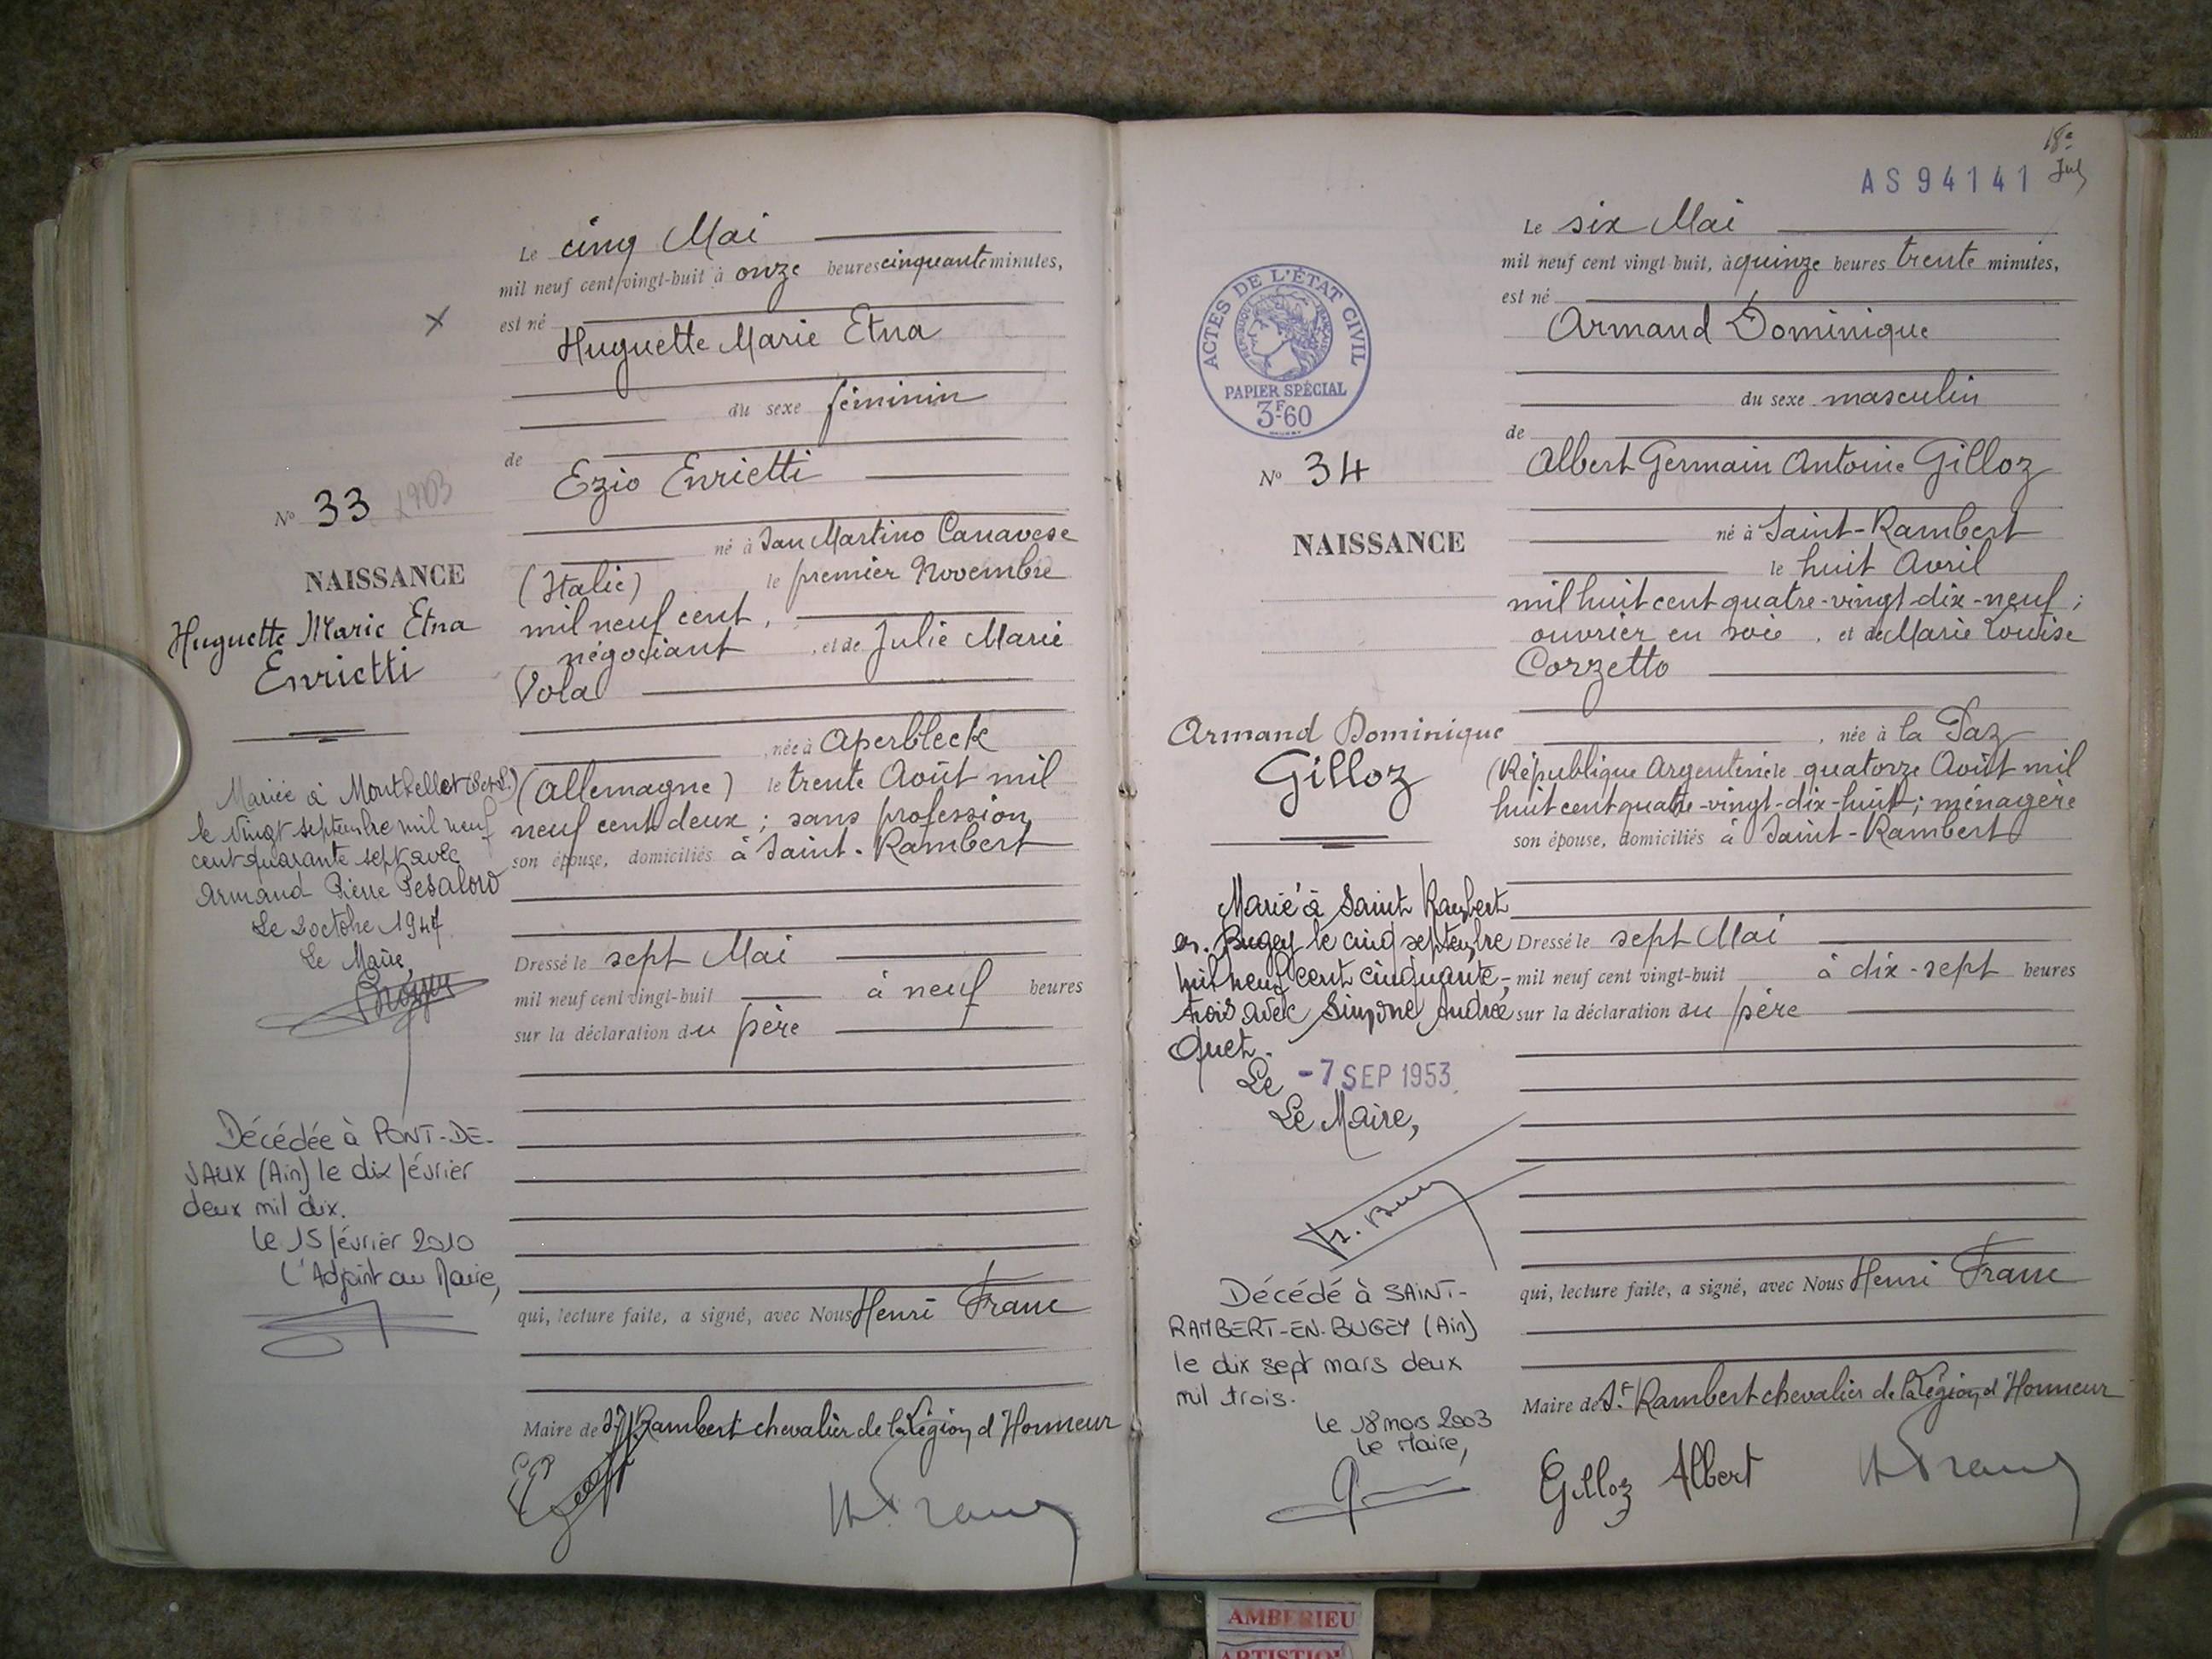 Le cinq Mai
mil neuf cent vingt-huit à onze heures cinquante minutes,
est né
Huguette Marie Etna
du sexe féminin
de
Ezio Enrietti
né à San Martino Canavese
(Italie) le premier Novembre
mil neuf cent,
négociant, et de Julie Marie
Vola
, née à Aperbleck
(Allemagne) le trente Août mil
neuf cent deux ; sans profession
son épouse, domiciliés à Saint-Rambert
Dressé le sept Mai
mil neuf cent vingt-huit à neuf heures
sur la déclaration du père
qui, lecture faite, a signé, avec Nous Henri Franc
Maire de St Rambert chevalier de la Légion d'Honneur
H Franc
No 33
NAISSANCE
Huguette Marie Etna
Enrietti
Mariée à Monthellet (S et L.)
le vingt septembre mil neuf
cent quarante sept avec
Armand Pierre
Le 2 octobre 1947
Le Maire,
Décédée à PONT-DE-
VAUX (Ain) le dix février
deux mil dix.
le 15 février 2010
L'Adjoint au Maire,
18e
AS94141
Le six Mai
mil neuf cent vingt huit, à quinze heures trente minutes,
est né
Armand Dominique
du sexe masculin
de
Albert Germain Antoine Gilloz
né à Saint-Rambert
le huit Avril
mil huit cent quatre-vingt-dix-neuf ;
ouvrier en soie, et de Marie Louise
Corzetto
, née à la Paz
(République Argentine) le quatorze Août mil
huit cent quatre-vingt-dix-huit ; ménagère
son épouse, domiciliés à Saint-Rambert
Dressé le sept Mai
mil neuf cent vingt-huit à dix-sept heures
sur la déclaration du père
qui, lecture faite, a signé, avec Nous Henri Franc
Maire de St. Rambert chevalier de la Légion d'Honneur
Gilloz Albert H Franc
ACTES DE L'ÉTAT CIVIL
RÉPUBLIQUE FRANÇAISE
PAPIER SPÉCIAL
3F60
No 34
NAISSANCE
Armand Dominique
Gilloz
Marié à Saint Rambert
en Bugey le cinq septembre
mil neuf cent cinquante-
trois avec Simone Andrée
Quet.
Le -7 SEP 1953
Le Maire,
Décédé à SAINT-
RAMBERT-EN-BUGEY (Ain)
le dix sept mars deux
mil trois.
le 18 mars 2003
le Maire,
AMBERIEU